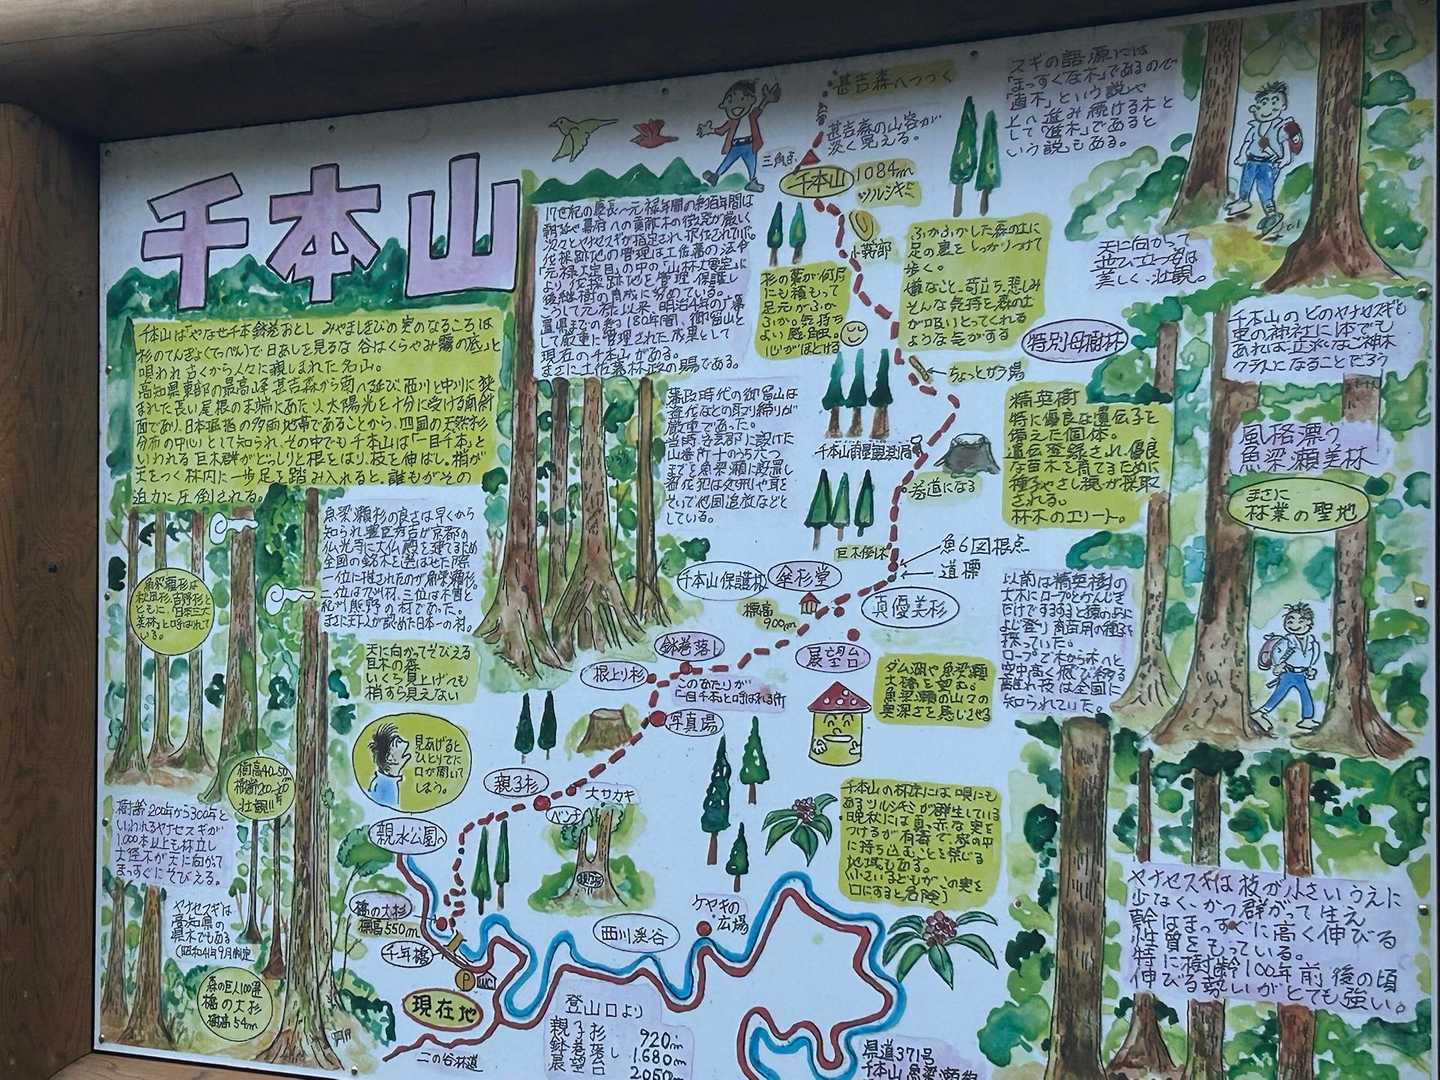 千本山
千本山は「やなせ千本鉢巻おとし みやましきびの実のなるころは
杉のてんぎょ(てっぺん)で日あしを見るな 谷はくらやみ霧の底」と
唄われ古くから人々に親しまれた名山。
高知県東部の最高峰甚吉森から南へ延び西川と中川に挟
まれた長い尾根の末端にあたり、太陽光を十分に受ける南斜
面であり、日本屈指の多雨地帯であることから、四国の天然杉
分布の中心として知られ、その中でも千本山は「一目千本」と
いわれる巨木群がどっしりと根をはり、枝を伸ばし、梢が
天をつく林内に一歩足を踏み入れると、誰もがその
迫力に圧倒される。
魚梁瀬杉は
秋田杉、吉野杉と
ともに「日本三大
美林」と呼ばれて
いる。
魚梁瀬杉の良さは早くから
知られ豊臣秀吉が京都の
仏光寺に大仏殿を建てるため
全国の銘木を選ばせた際
一位に推されたのが魚梁瀬杉。
まさに天下人が認めた日本一の杉。
天に向かってそびえる
巨木の森
いくら見上げても
梢すら見えない
見あげると
ひとりでに
口が開いて
しまう。
樹高40～50m
壮観!!
樹齢200年から300年と
いわれるヤナセスギが
1,000本以上も林立し
大径木が天に向かって
まっすぐにそびえる。
ヤナセスギは
高知県の
県木でもある
(昭和41年9月制定)
森の巨人100選
橋の大杉
樹高54m
17世紀の慶長～元禄年間の約百年間は
現在の千本山がある。
まさに土佐藩林政の賜である。
藩政時代の御留山は
盗伐などの取り締りが
厳重であった。
当時、安芸郡に設けた
山番所十のうち六つ
までを魚梁瀬に設置し
盗伐犯は処刑や耳を
そいで他国追放などと
している。
甚吉森へつづく
甚吉森の山容が
淡く見える。
三角点
千本山
1084m
ツルシキミ
小薮部
杉の葉が何層
にも積もって
足元がふか
ふか。気持ち
よい感触。
心がほどける
ふかふかした森の土に
足の裏をしっかりつけて
歩く。
嫌なこと、苛立ち、悲しみ
そんな気持を森の土
が吸いとってくれる
ような気がする
ちょっとガラ場
特別母樹林
精英樹
特に優良な遺伝子を
備えた個体。
遺伝登録され、優良
な苗木を育てるために
種子やさし穂が採取
される。
林木のエリート。
千本山雨量観測局
若道になる
巨木倒木
魚6図根点
道標
千本山保護林
傘杉堂
標高
900m
真優美杉
展望台
鉢巻落し
根上り杉
このあたりが
「一目千本」と呼ばれる所
写真場
親子杉
ベンチ
大サカキ
親水公園へ
橋の大杉
標高550m
千年橋
P
WC
現在地
二の谷林道
西川渓谷
ケヤキの
広場
ダム湖や魚梁瀬
大橋を望む。
魚梁瀬の山々の
奥深さを感じさせる
千本山の林床には唄にも
あるツルシキミが群生している
晩秋には真っ赤な実を
つけるが有毒で、家の中
に持ち込むことを禁じる
地域もある。
(小さい子どもがこの実を
口にすると危険)
登山口より
親子杉 720m
鉢巻落し 1,680m
展望台 2,050m
県道371号
スギの語源には
「まっすぐな木」であるので
「直木」という説や
上へ進み続ける木と
して「進木」であると
いう説もある。
天に向かって
せいくらべは
美しく、壮観。
千本山のどのヤナセスギも
里の神社に1本でも
あれば、立派なご神木
クラスになることだろう
風格漂う
魚梁瀬美林
まさに
林業の聖地
以前は精英樹の
大木にロープとかんじき
だけでするすると猿のように
よじ登り、育苗用の種を
採っていた。
ロープで木から木へと
空中高く飛び移る
離れ技は全国に
知られていた。
ヤナセスギは枝が小さいうえに
少なく、かつ群がって生え
幹はまっすぐに高く伸びる
性質をもっている。
特に樹齢100年前後の頃
伸びる勢いがとても強い。